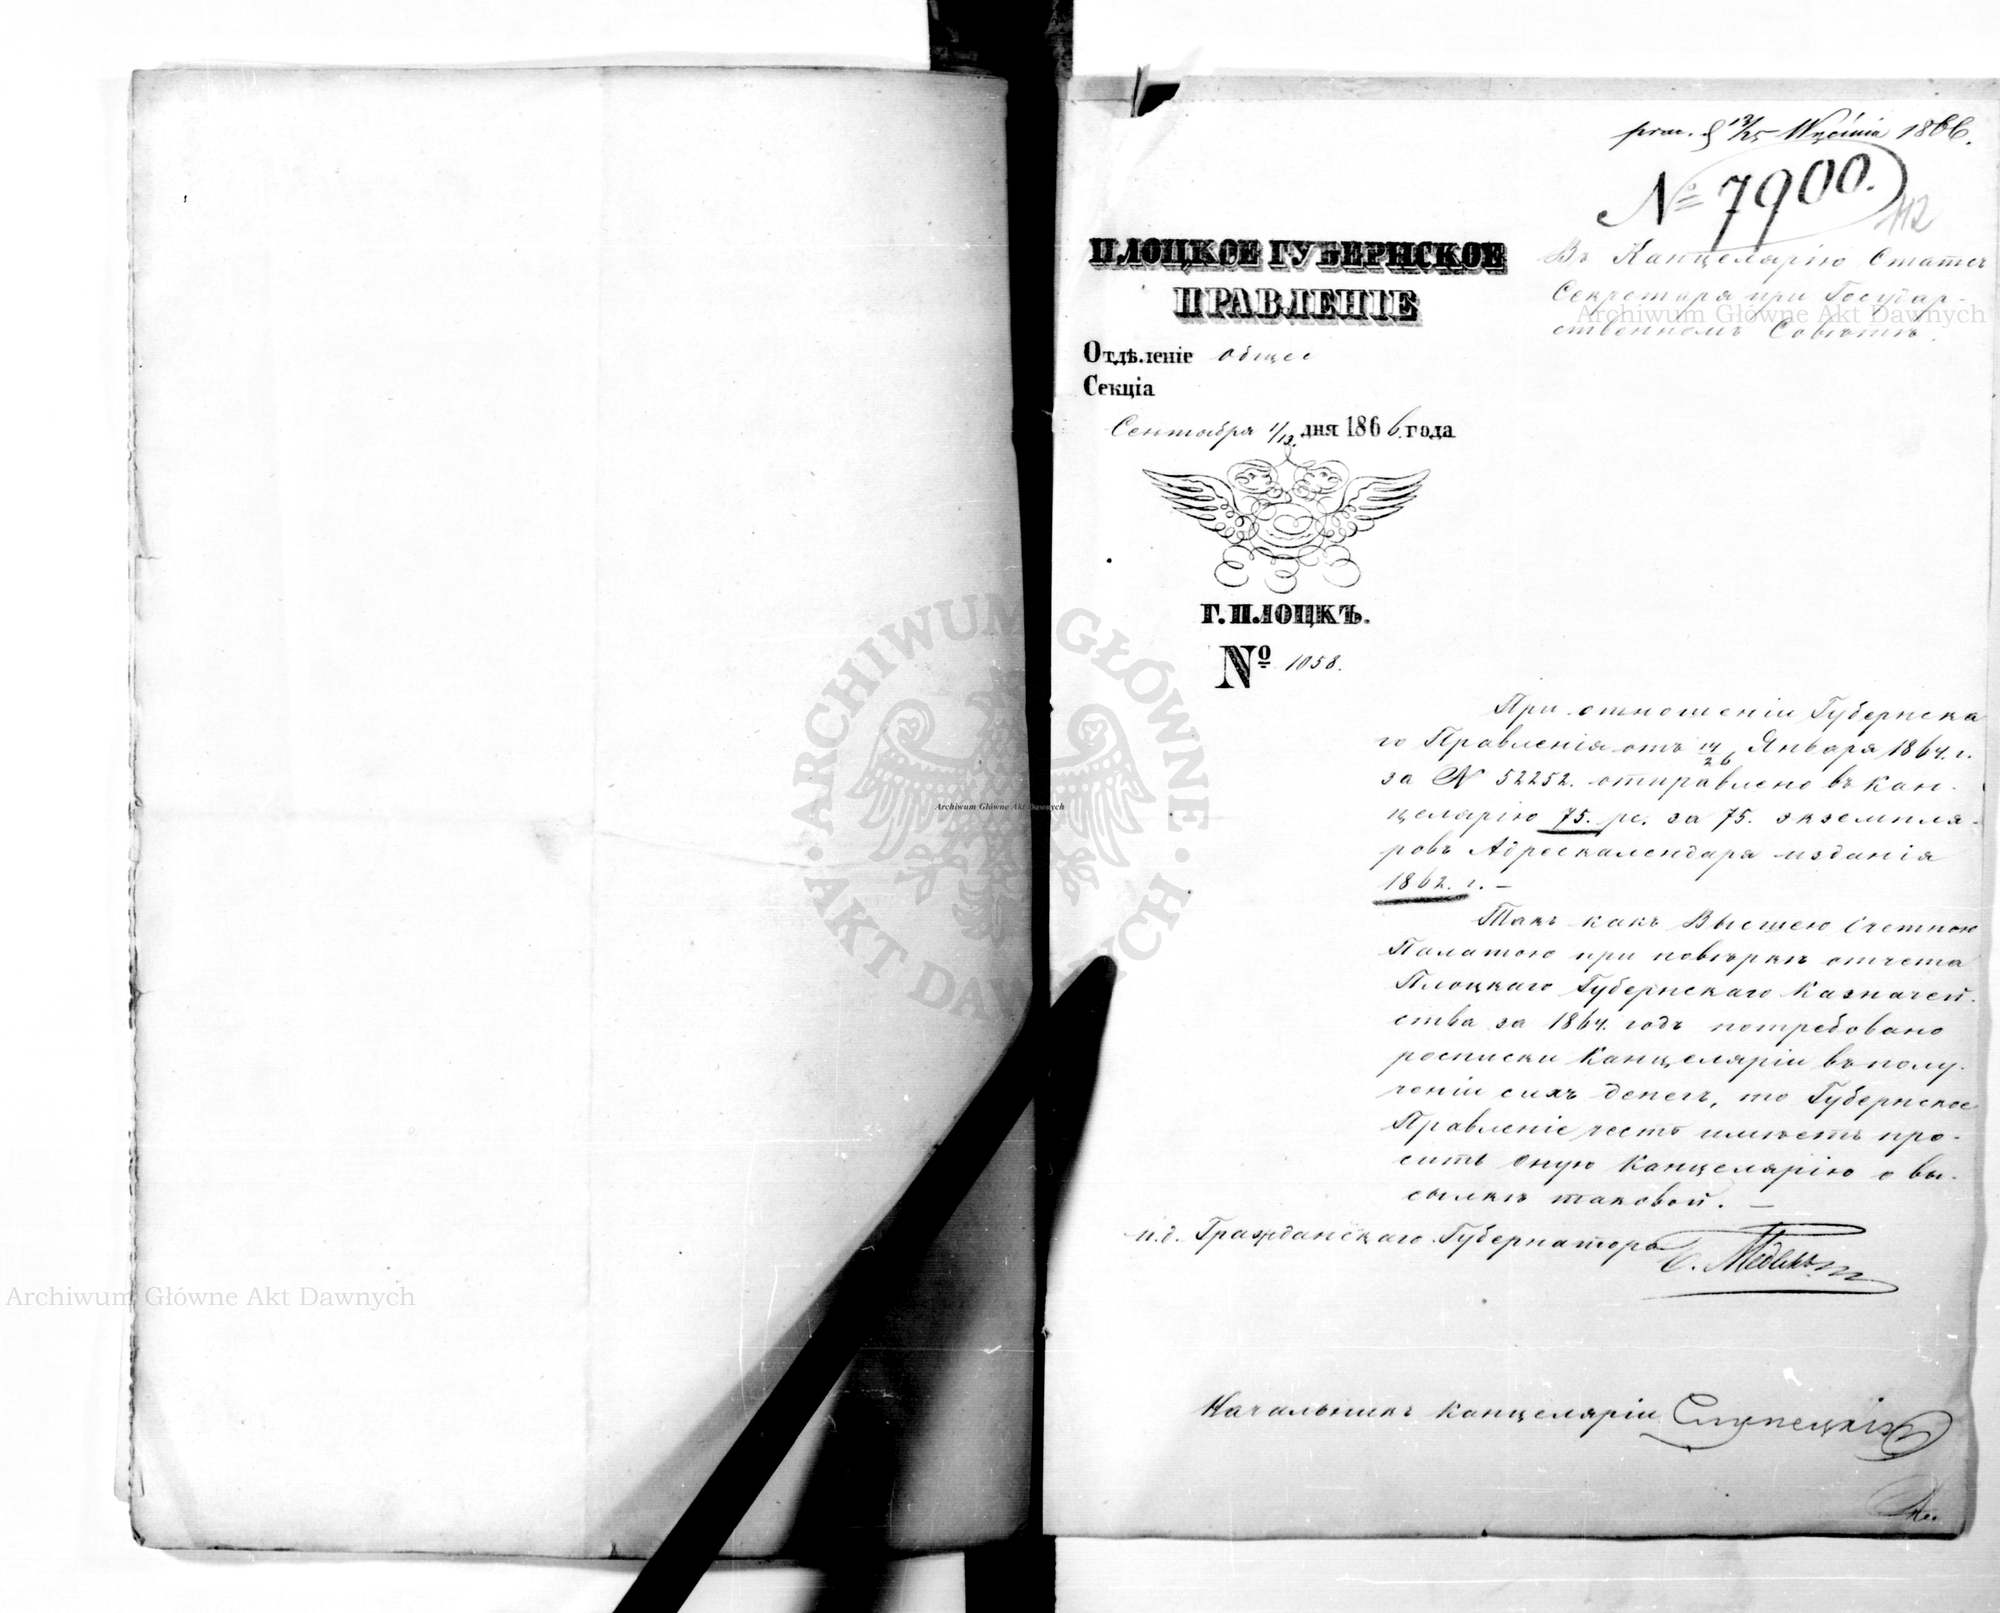 13/25 1866.
№ 7900.
112
ПЛОЦКОЕ ГУБЕРНСКОЕ
ПРАВЛЕНІЕ
Отдѣленіе общее
Секція
Сентября 1/13 дня 1866 года
Г. ПЛОЦКЪ.
№ 1058.
Въ Канцелярію Статсъ
Секретаря при Государ-
ственномъ Совѣтѣ.
При отношеніи Губернска
го Правленія отъ 14/26 Января 1864 г.
за № 52252. отправлено въ Кан-
целярію 75. рс. за 75. экземпля-
ровъ Адрескалендаря изданія
1862. г. —
Такъ какъ Высшею Счетною
Палатою при повѣркѣ отчета
Плоцкаго Губернскаго Казначей-
ства за 1864. годъ потребовано
росписки Канцеляріи въ полу-
ченіи сихъ денегъ, то Губернское
Правленіе честь имѣетъ про-
сить Оную Канцелярію о вы-
сылкѣ таковой. —
и.д. Гражданскаго Губернатора
Начальникъ Канцеляріи Слупецкій
Archiwum Główne Akt Dawnych
Archiwum Główne Akt Dawnych
Archiwum Główne Akt Dawnych
ARCHIWUM GŁÓWNE
AKT DAWNYCH